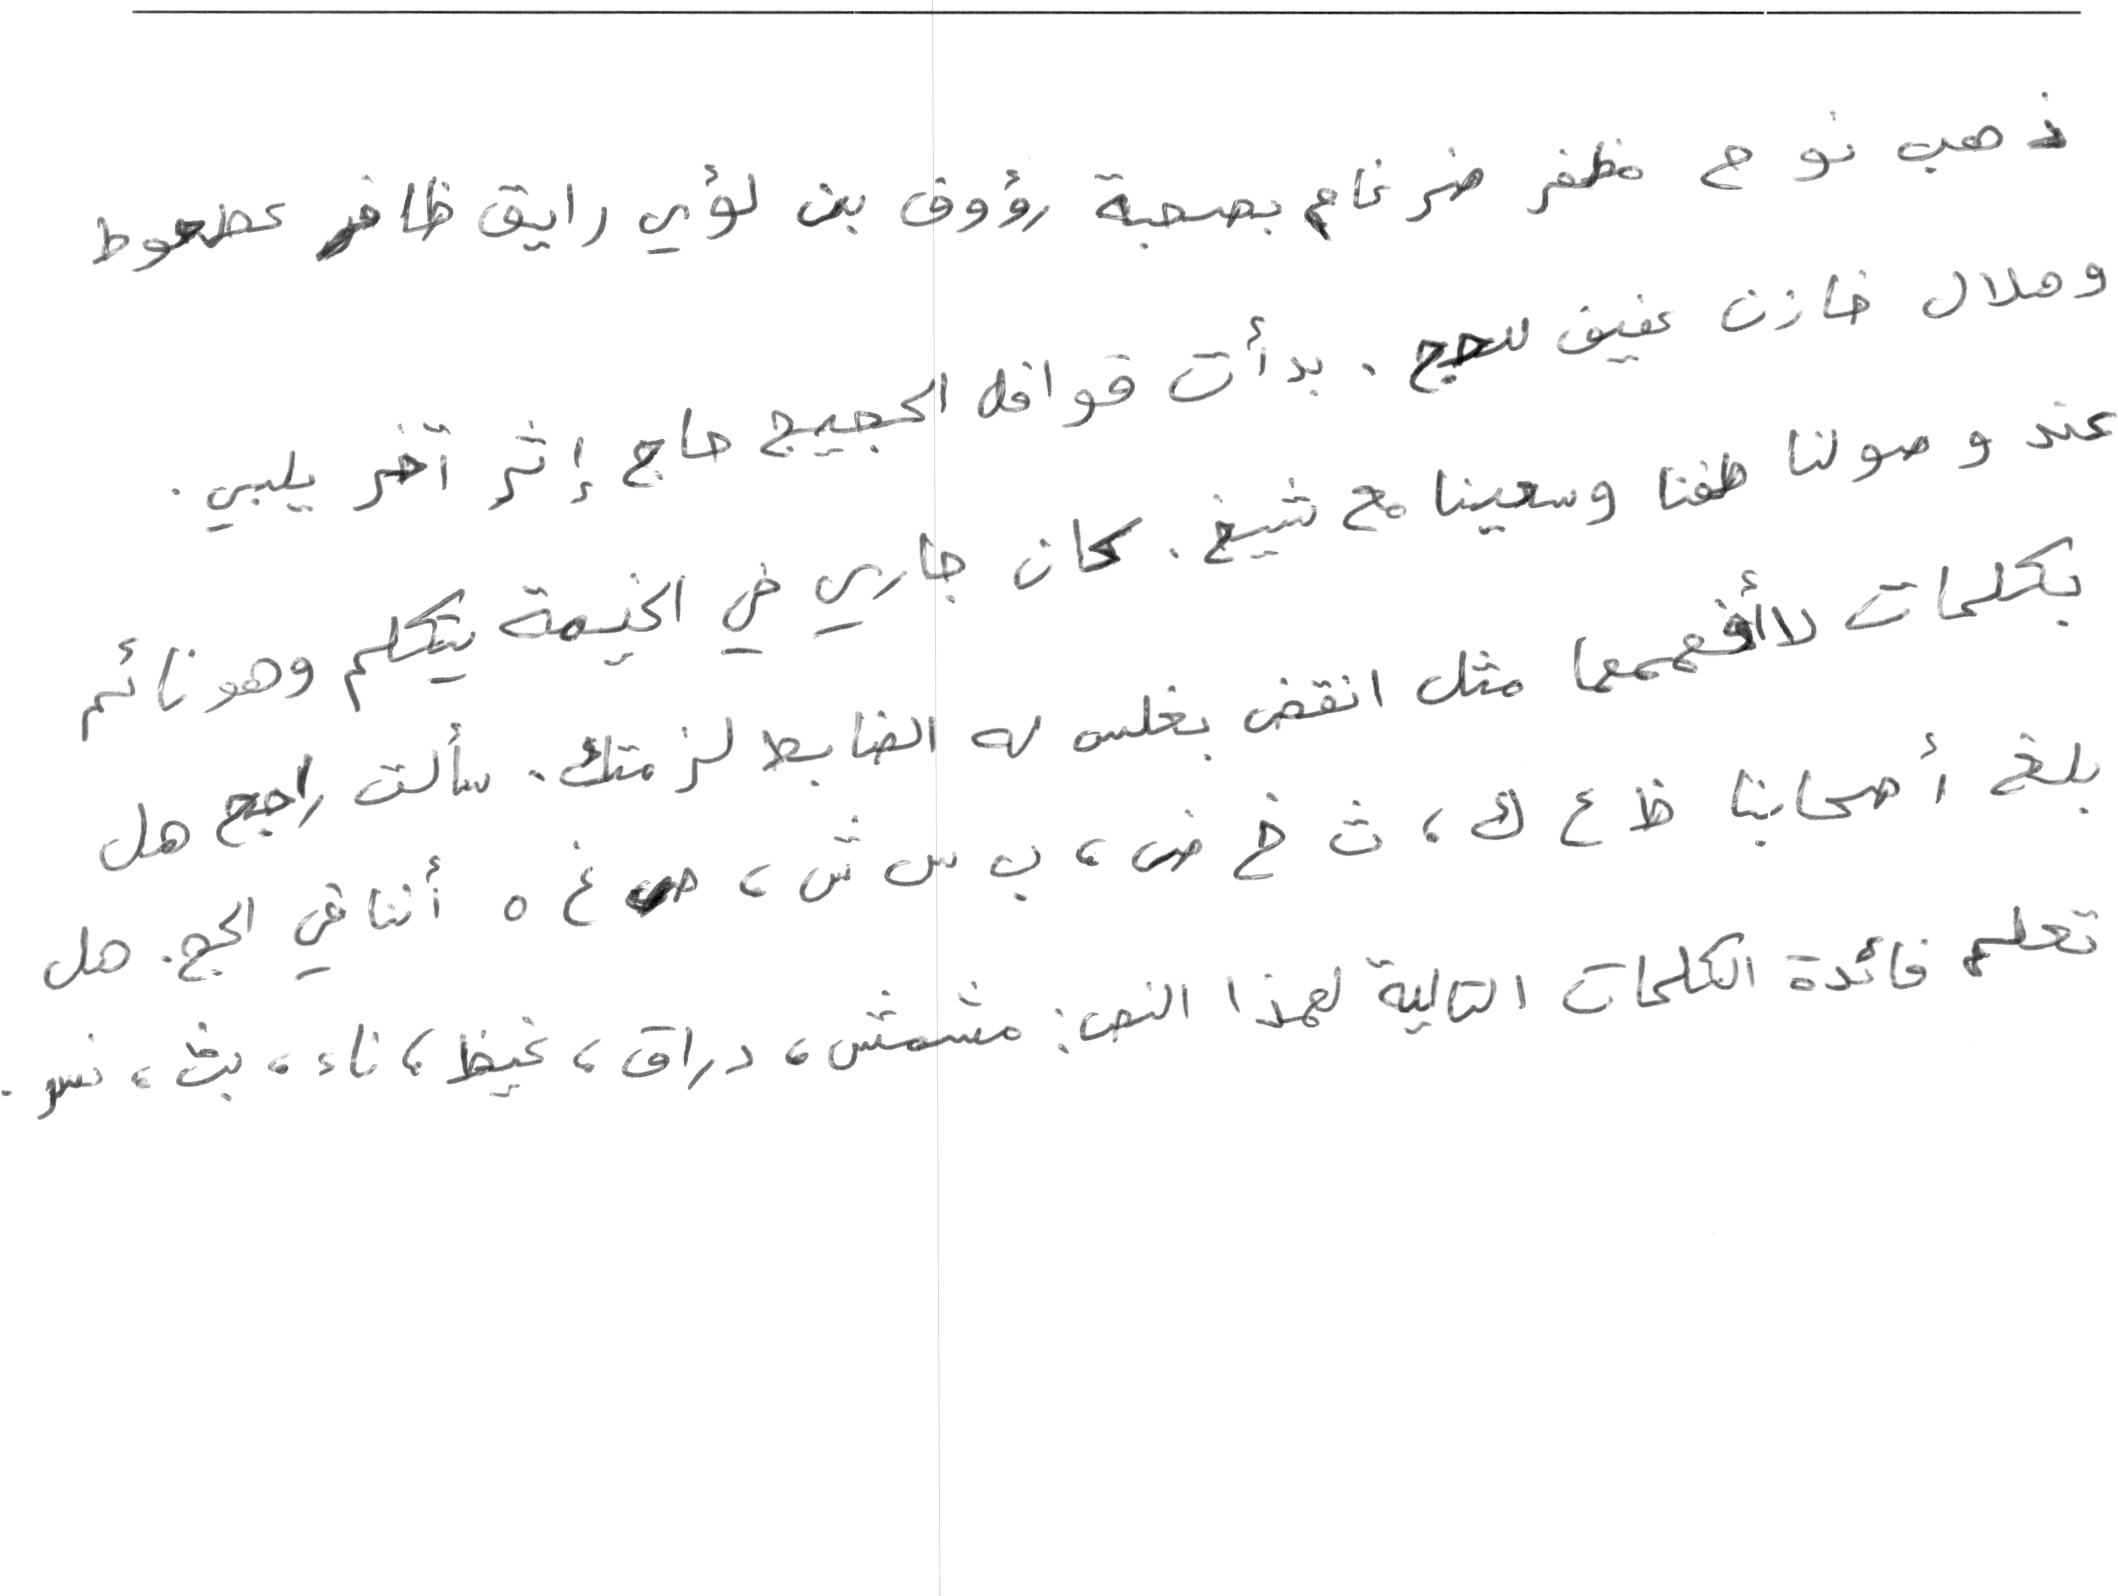 ذهب نوح مظفر ضرغام بصحبة رؤوف بن لؤي رايق ظافر عطعوط
وهلال خازن عفيف للحج. بدأت قوافل الحجيج حاج إثر آخر يلبي.
عند وصولنا طفنا وسعينا مع شيخ. كان جاري في الخيمة يتكلم وهو نائم
بكلمات لا أفهمها مثل انقض بغلس له الضابط لزمتك. سألت راجح هل
بلغ أصحابنا ظ ع ك، ث خ ض، ب س ش، ص غ ه أننا في الحج. هل
تعلم فائدة الكلمات التالية لهذا النص: مشمش، دراق، غيظ، ناء، بث، نسر.